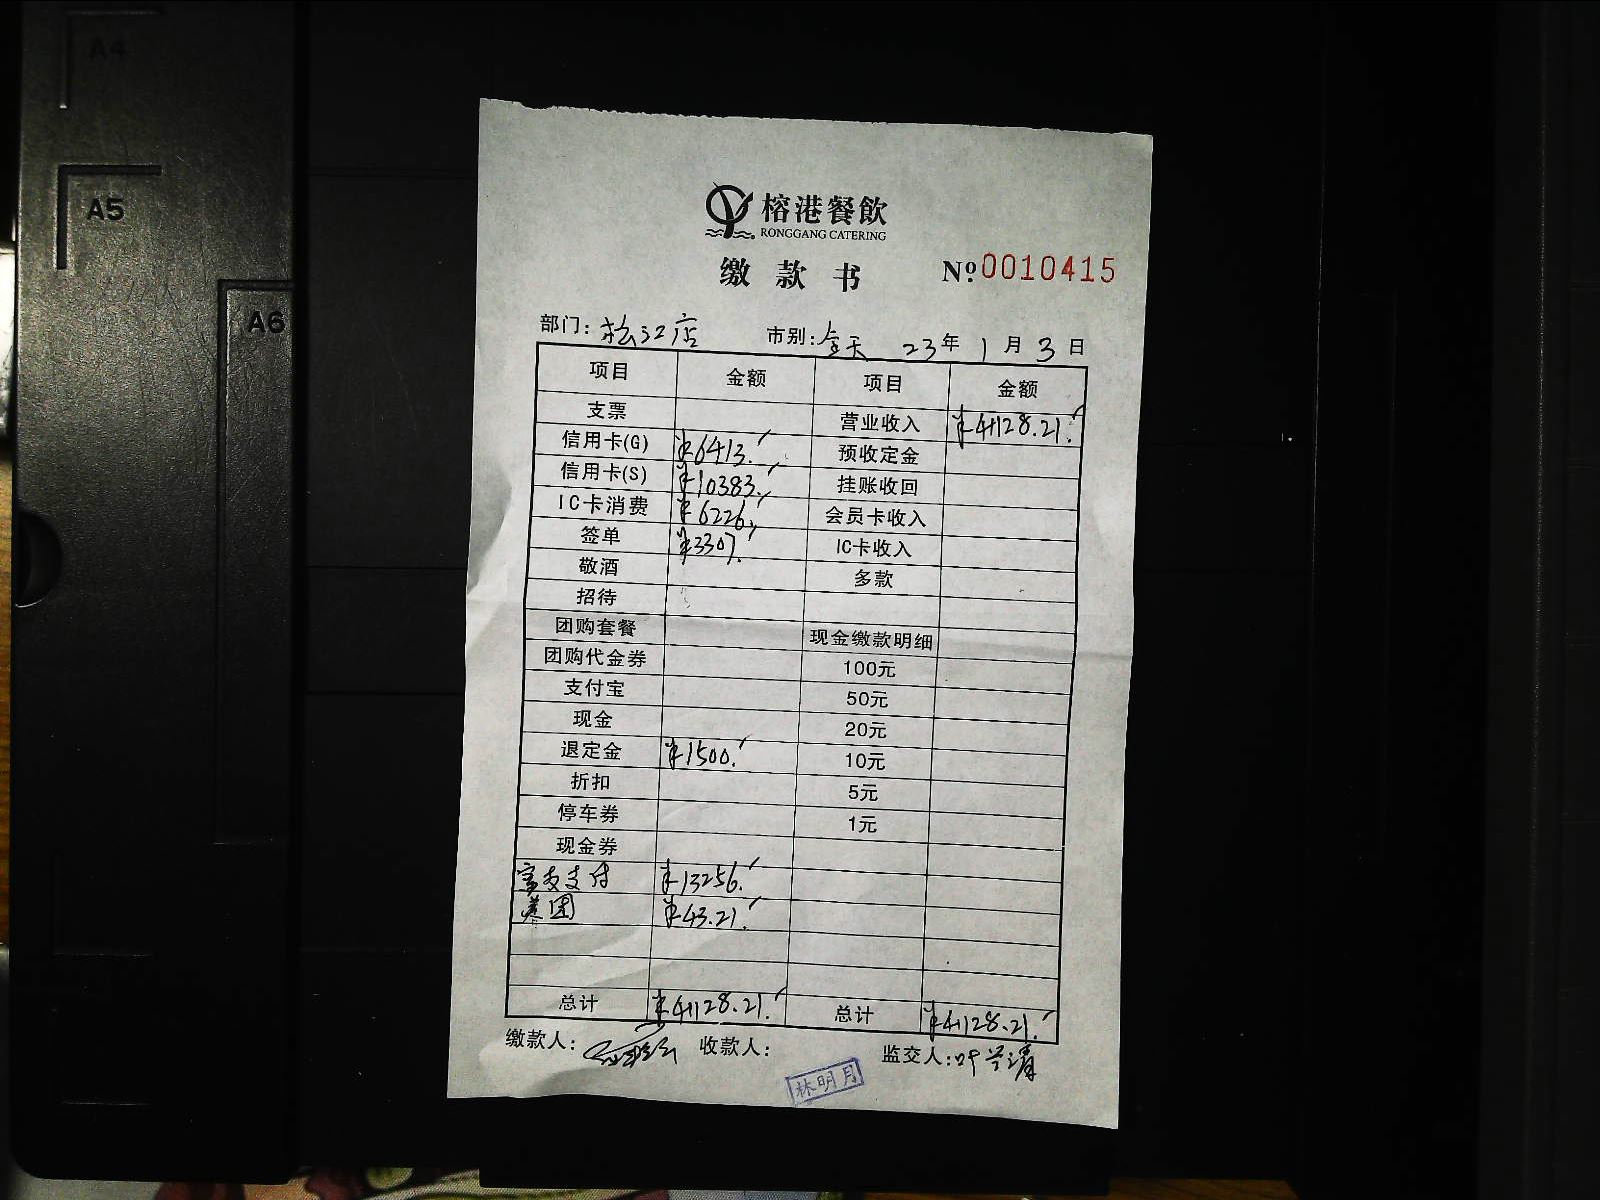 A4
A5
A6
榕港餐飲
RONGGANG CATERING
缴款书 №0010415
部门: 松江店 市别: 全天 23年1月3日
项目 金额 项目 金额
支票 营业收入 ¥41128.21.
信用卡(G) ¥6413. 预收定金
信用卡(S) ¥10383. 挂账收回
IC卡消费 ¥6226. 会员卡收入
签单 ¥3307. IC卡收入
敬酒 多款
招待
团购套餐 现金缴款明细
团购代金券 100元
支付宝 50元
现金 20元
退定金 ¥1500. 10元
折扣 5元
停车券 1元
现金券
支付 ¥13256.
美团 ¥43.21.
总计 ¥41128.21. 总计 ¥41128.21.
缴款人: 收款人: 监交人: 叶兰清
林明月